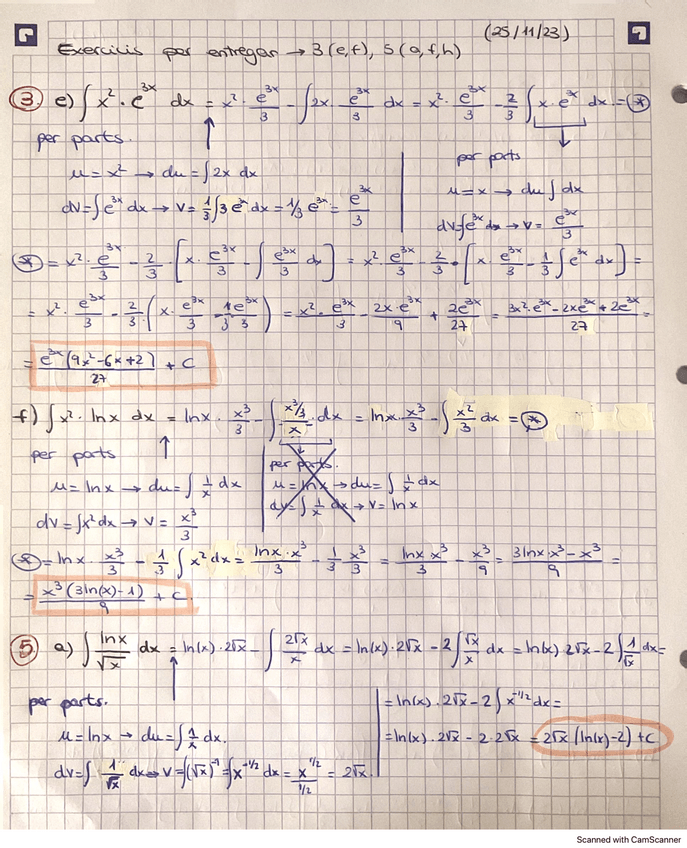 (25/11/23)
Exercicis per entregar → 3(e,f), 5(a,f,h)
3. e) ∫ x² · e^3x dx = x² · e^3x/3 - ∫ 2x · e^3x/3 dx = x² · e^3x/3 - 2/3 ∫ x · e^3x dx = (*)
per parts.
u = x² → du = ∫ 2x dx
dv = ∫ e^3x dx → v = 1/3 ∫ 3 e^3x dx = 1/3 e^3x = e^3x/3
per parts
u = x → du ∫ dx
dv = ∫ e^3x dx → v = e^3x/3
(*) = x² · e^3x/3 - 2/3 · [x · e^3x/3 - ∫ e^3x/3 dx] = x² · e^3x/3 - 2/3 · [x · e^3x/3 - 1/3 ∫ e^3x dx] =
= x² · e^3x/3 - 2/3 · (x · e^3x/3 - 1/3 e^3x/3) = x² · e^3x/3 - 2x · e^3x/9 + 2e^3x/27 = 3x² · e^3x - 2x e^3x + 2e^3x/27 =
= e^3x (9x² - 6x + 2)/27 + C
f) ∫ x² · lnx dx = lnx · x³/3 - ∫ x³/3/x · dx = lnx · x³/3 - ∫ x²/3 dx = (*)
per parts
u = lnx → du = ∫ 1/x dx
dv = ∫ x² dx → v = x³/3
per parts.
u = lnx → du = ∫ 1/x dx
dv = ∫ 1/x dx → v = lnx
(*) = lnx · x³/3 - 1/3 ∫ x² dx = lnx · x³/3 - 1/3 · x³/3 = lnx x³/3 - x³/9 = 3lnx x³ - x³/9 =
= x³ (3ln(x) - 1)/9 + C.
5 a) ∫ lnx/√x dx = ln(x) · 2√x - ∫ 2√x/x dx = ln(x) · 2√x - 2 ∫ √x/x dx = ln(x) 2√x - 2 ∫ 1/√x dx =
per parts.
u = lnx → du = ∫ 1/x dx.
dv = ∫ 1/√x dx → v = ∫ (√x)^-1 = ∫ x^-1/2 dx = x^1/2/1/2 = 2√x.
= ln(x) · 2√x - 2 ∫ x^-1/2 dx =
= ln(x) · 2√x - 2 · 2√x = 2√x (ln(x) - 2) + C
Scanned with CamScanner